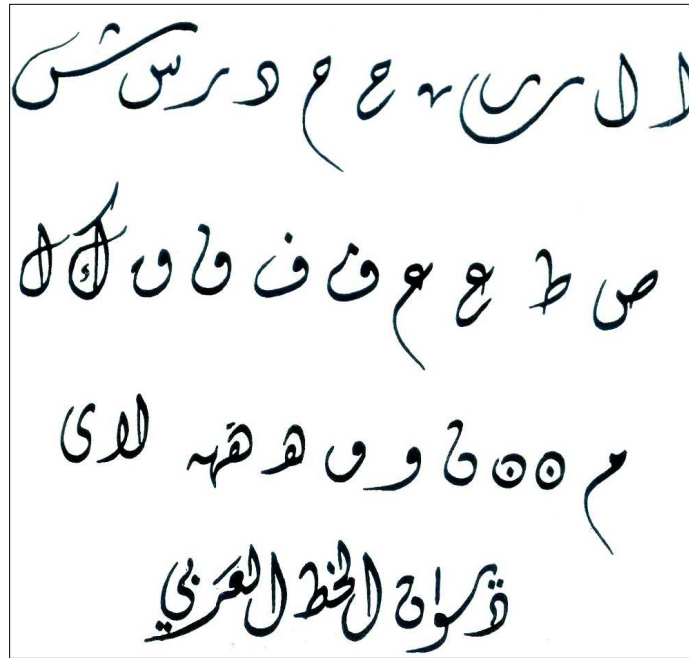 ا ح ح د ر س ش
ص ط ع ع ف ف ك ل
م ن و ه لا ى
ديوان الخط العربي